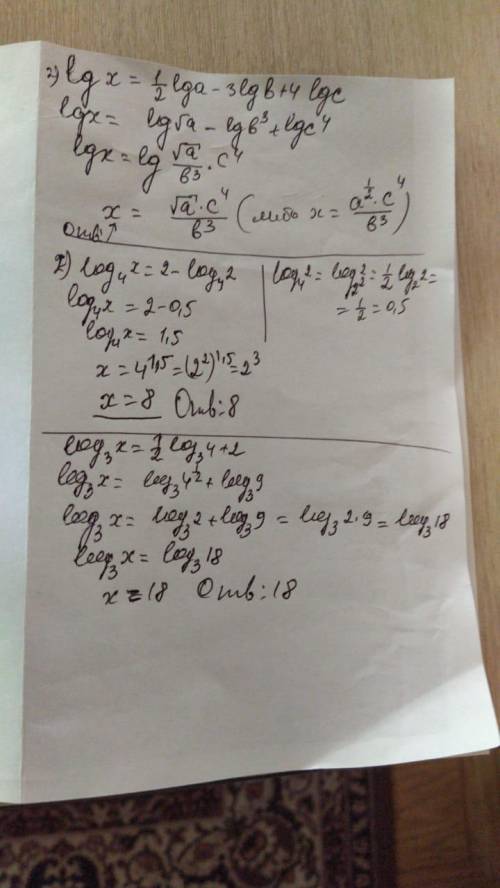 2) lg x = 1/2 lg a - 3 lg b + 4 lg c
lg x = lg √a - lg b³ + lg c⁴
lg x = lg √a/b³ · c⁴
x = √a · c⁴/b³ (либо x = a^(1/2) · c⁴/b³)
Ответ ↑
2) log₄x = 2 - log₄2
log₄x = 2 - 0,5
log₄x = 1,5
x = 4^1,5 = (2²)^1,5 = 2³
x = 8 Отв: 8
log₄2 = log₂²2 = 1/2 log₂2 =
= 1/2 = 0,5
log₃x = 1/2 log₃4 + 2
log₃x = log₃4^(1/2) + log₃9
log₃x = log₃2 + log₃9 = log₃2·9 = log₃18
log₃x = log₃18
x = 18 Отв: 18